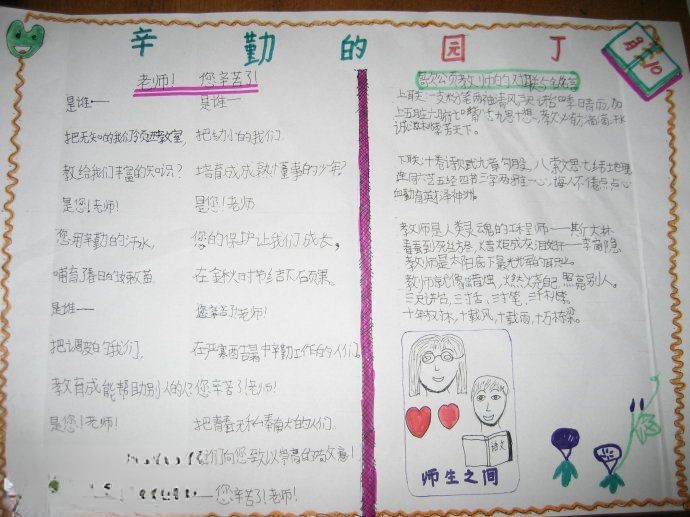 辛勤的园丁
9月10
老师! 您辛苦了!
是谁—— 是谁——
把无知的我们领进教室, 把幼小的我们.
教给我们丰富的知识? 培育成成熟懂事的少年?
是您!老师! 是您!老师
您用辛勤的汗水, 您的保护让我们成长,
哺育了春日的 在金秋时节结下石硕果.
是谁—— 您辛苦了老师!
把调皮的我们, 在严寒酷暑中辛勤工作的人们.
教育成能帮助别人的人? 您辛苦了老师!
是您!老师! 把青春无私奉献的人们.
们向您致以崇高的敬意!
——您辛苦了!老师!
歌颂教师的对联与名言
上联:一支粉笔两袖清风三尺讲台四季晴雨,加
上五脏六腑七嘴八舌九思十想,教必有方滴滴汗水
诚滋桃李芳天下.
下联:十卷诗赋九章勾股,八索文思七纬地理
连同六艺五经四书三字两雅一心,诲人不倦点点心
血勤育英才泽神州.
教师是人类灵魂的工程师——斯大林
春蚕到死丝方尽,蜡炬成灰泪始干——李商隐
教师是太阳底下最光辉的职业.
教师就像蜡烛,燃烧自己,照亮别人.
三尺讲台,三寸舌,三寸笔,三千桃李.
十年树木,十载风,十载雨,十万栋梁.
语文
师生之间